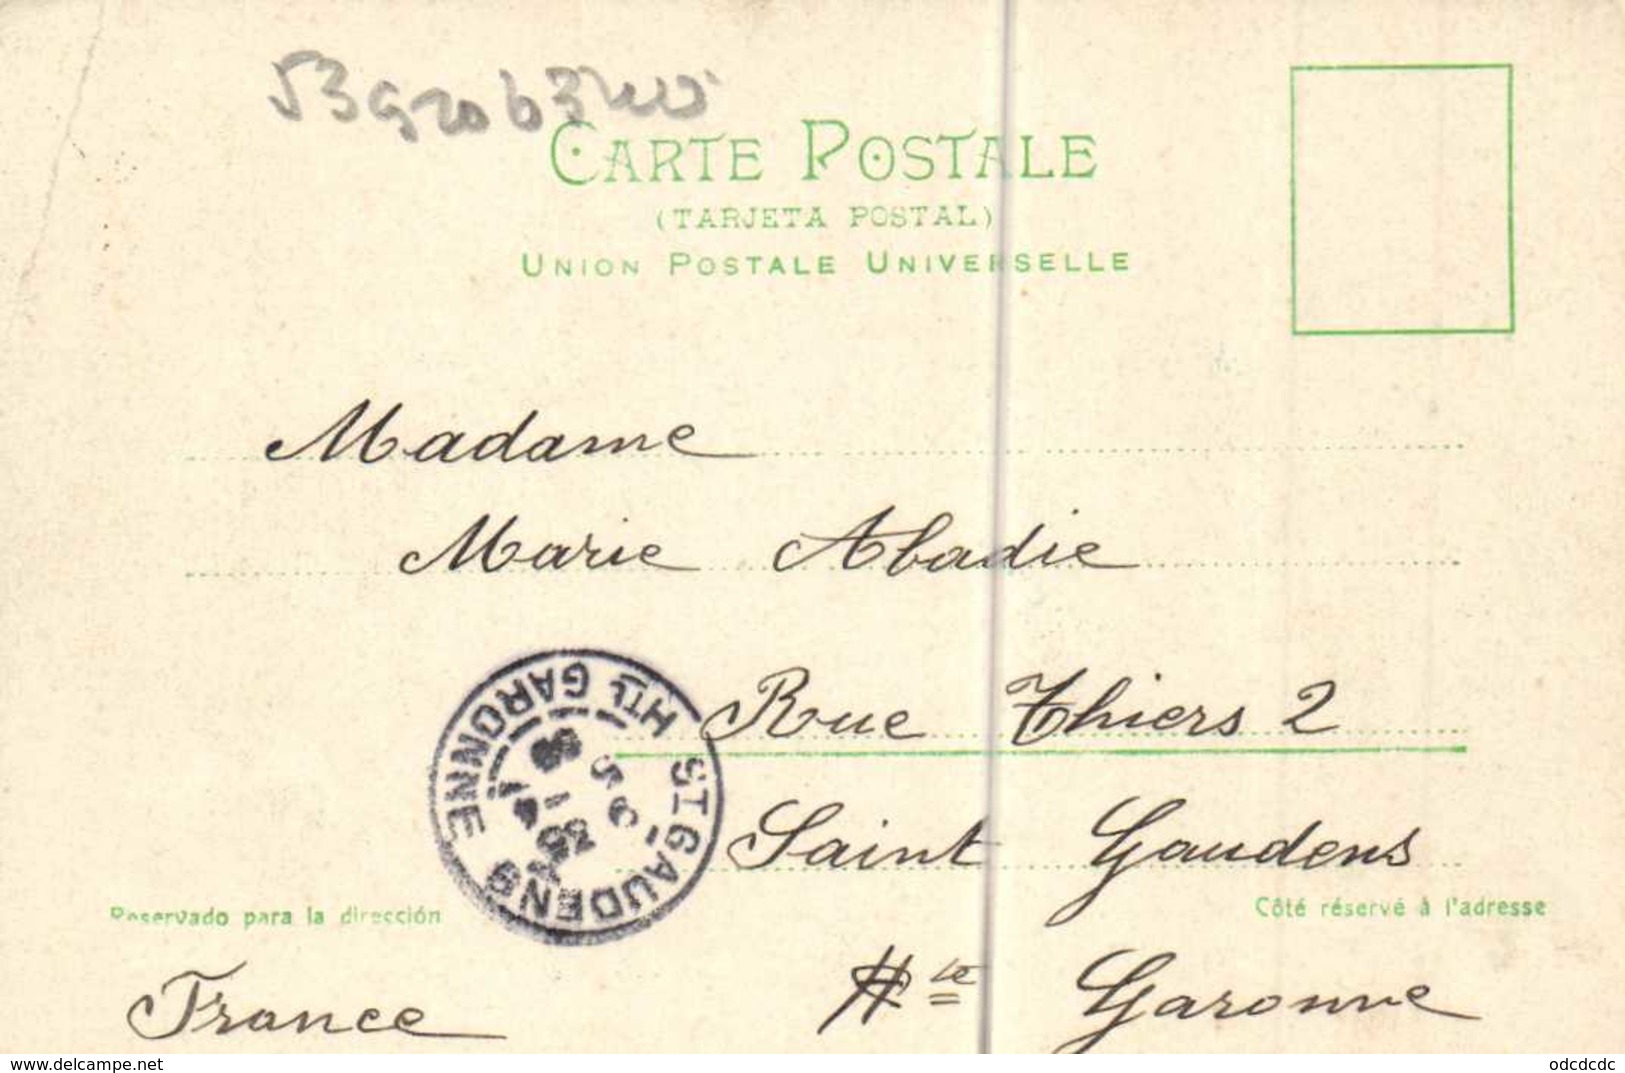 CARTE POSTALE
(TARJETA POSTAL)
UNION POSTALE UNIVERSELLE
Madame
Marie Abadie
Rue Thiers 2
Saint Gaudens
Reservado para la dirección
Côté réservé à l'adresse
Hte Garonne
France
ST GAUDENS
HTE GARONNE
Visit our site: https://www.delcampe.net
odcdcdc